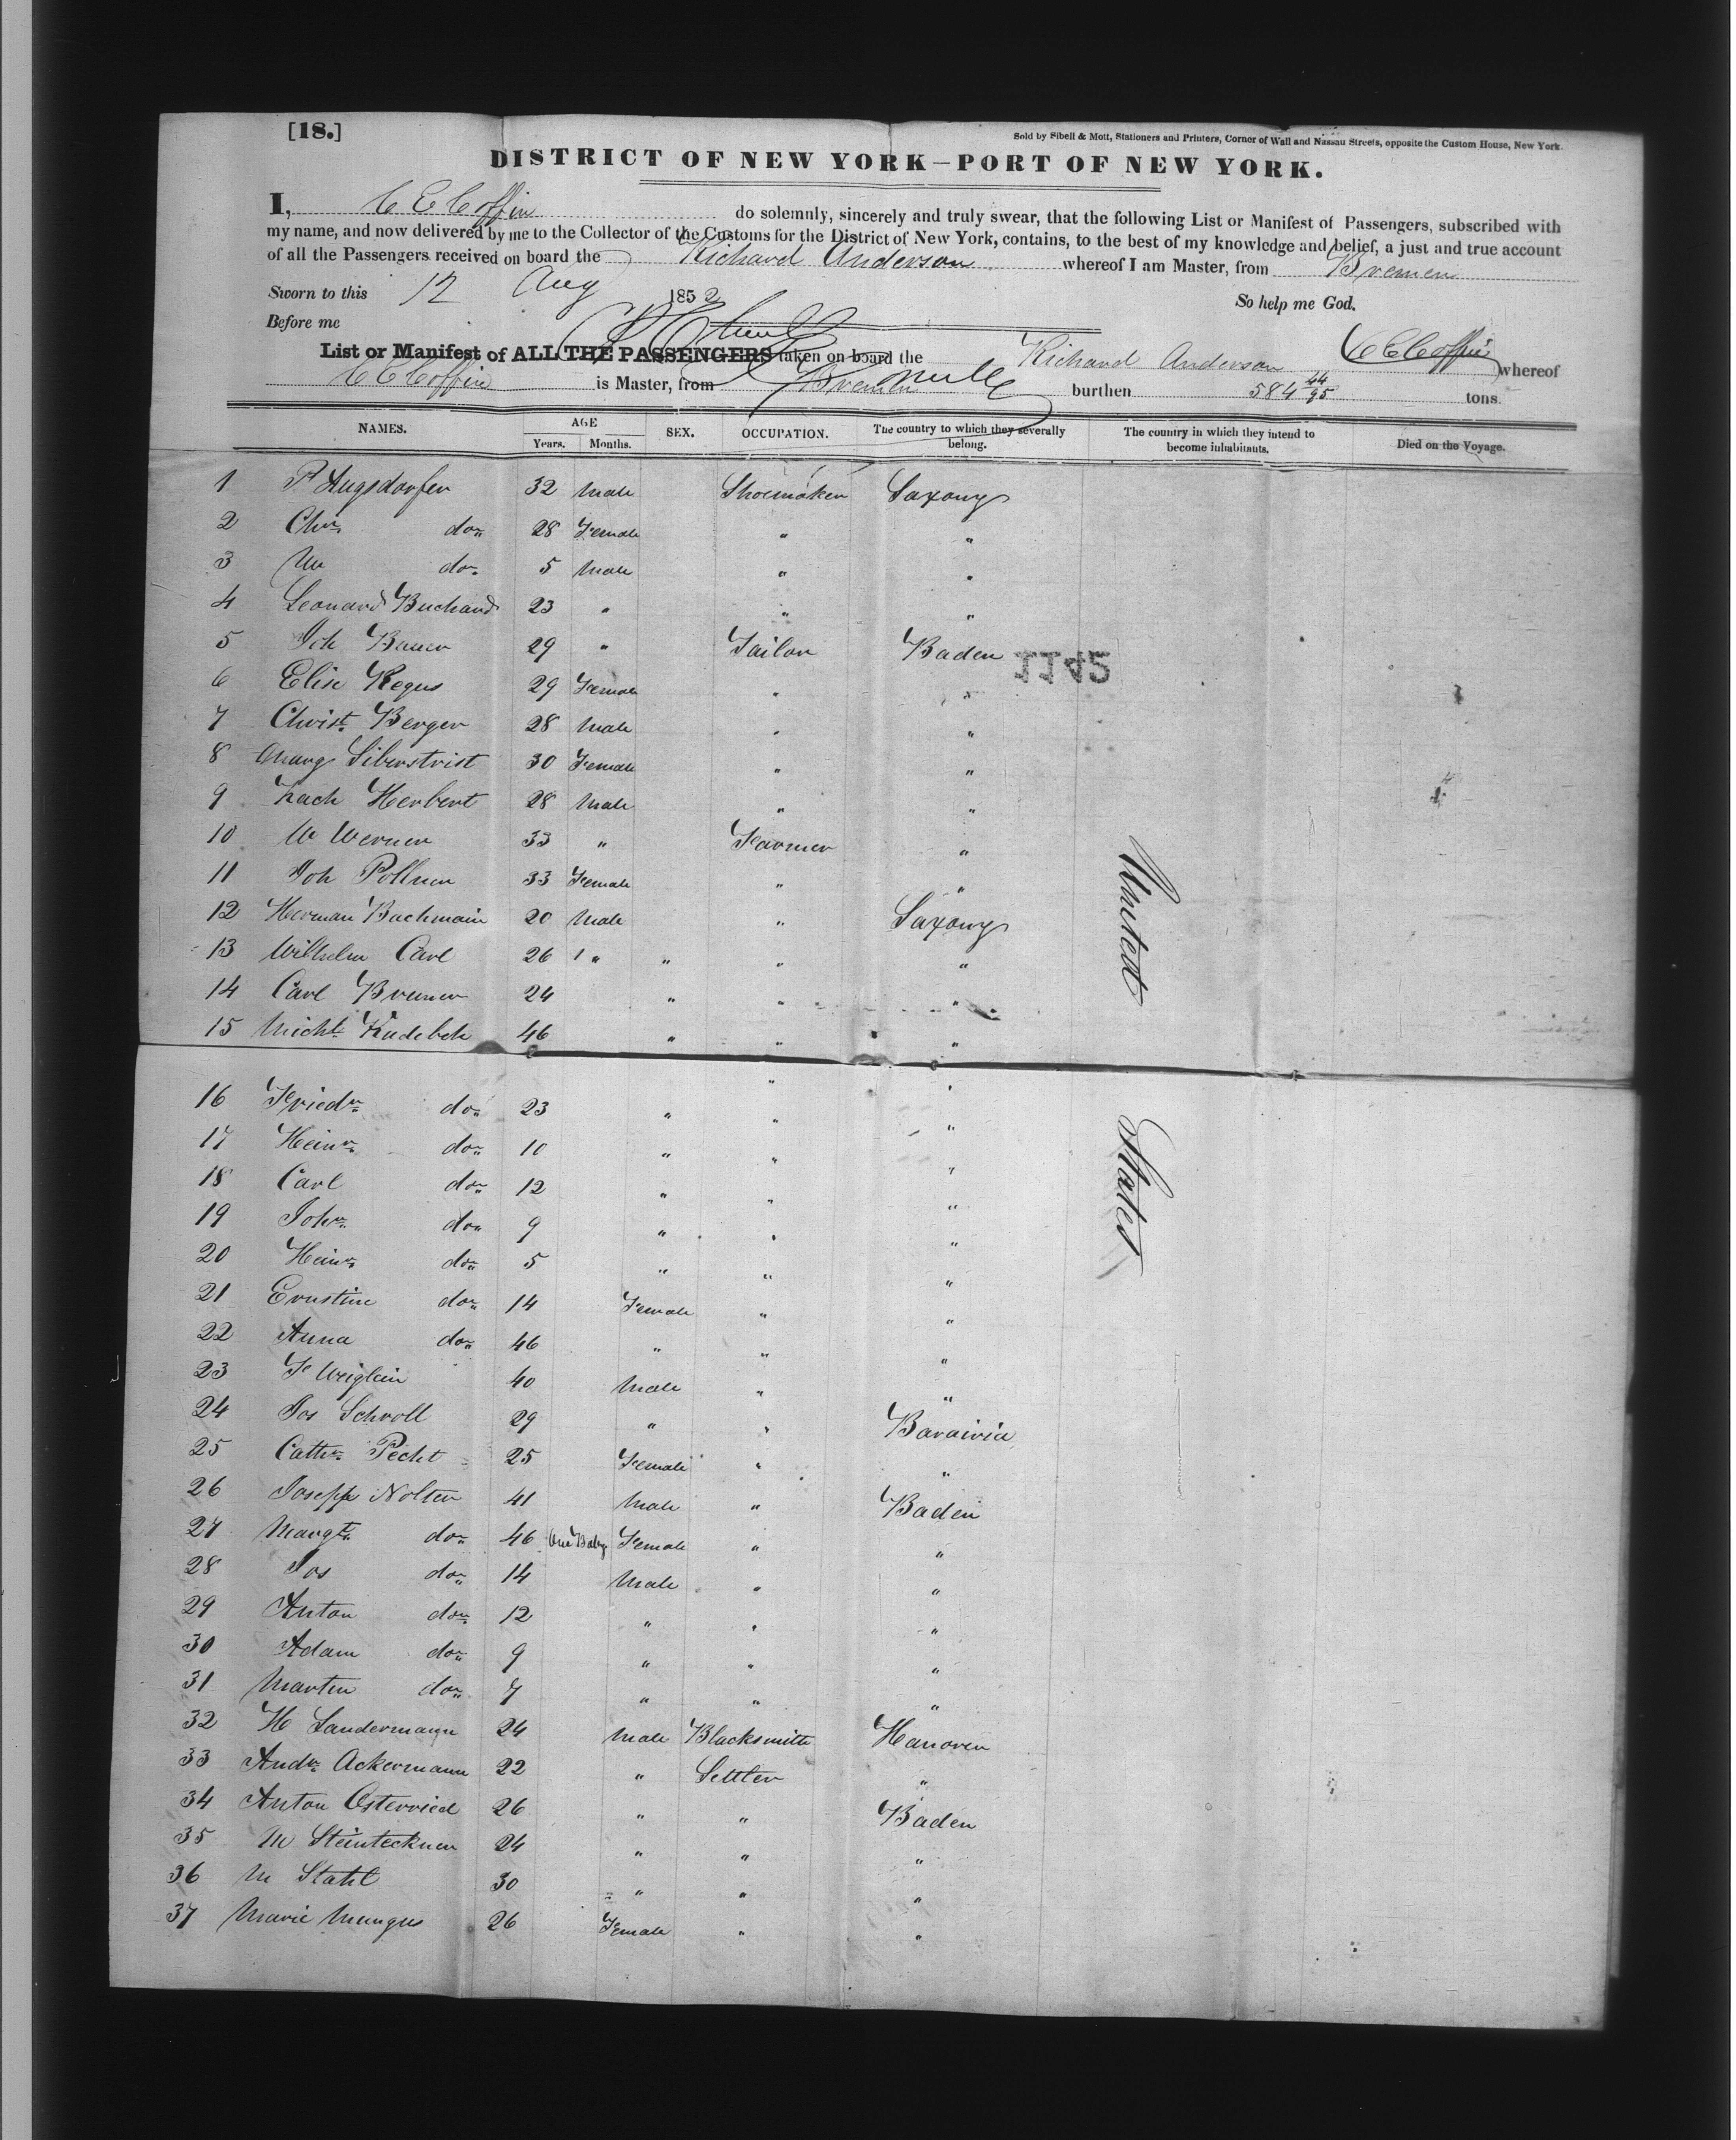 [18.]
Sold by Sibell & Mott, Stationers and Printers, Corner of Wall and Nassau Streets, opposite the Custom House, New York.
DISTRICT OF NEW YORK—PORT OF NEW YORK.
I, C E Coffin do solemnly, sincerely and truly swear, that the following List or Manifest of Passengers, subscribed with
my name, and now delivered by me to the Collector of the Customs for the District of New York, contains, to the best of my knowledge and belief, a just and true account
of all the Passengers received on board the Richard Anderson whereof I am Master, from Bremen
Sworn to this 12 Aug 1852 So help me God.
Before me
C E Coffin
List or Manifest of ALL THE PASSENGERS taken on board the Richard Anderson whereof
C E Coffin is Master, from Bremen burthen 584 44/95 tons.
NAMES. AGE Years. Months. SEX. OCCUPATION. The country to which they severally belong. The country in which they intend to become inhabitants. Died on the Voyage.
1 P Hugsdorfer 32 Male Shoemaker Saxony
2 Chr do 28 Female " "
3 do 5 Male " "
4 Leonard Buchard 23 " " "
5 Joh Bauer 29 " Tailor Baden
1145
6 Elise Regus 29 Female " "
7 Christ Berger 28 Male " "
8 Marg Siberstrist 30 Female " "
9 Zach Herbert 28 Male " "
10 W Werner 33 " Farmer "
11 Joh Pollner 33 Female " "
12 Herman Bachmain 20 Male " Saxony
13 Wilhelm Carl 26 1 " " " "
14 Carl Bremer 24 " " "
15 Micht Radebek 46 " " "
16 Friedr do 23 " " "
17 Heinr do 10 " " "
18 Carl do 12 " " "
19 Johr do 9 " " "
20 Heinr do 5 " " "
21 Ernstine do 14 Female " "
22 Anna do 46 " " "
23 F Weiglein 40 Male " "
24 Jos Schroll 29 " " Baraivia
25 Cathr Pecht 25 Female " "
26 Joseph Nolten 41 Male " Baden
27 Margt do 46 One Baby Female " "
28 Jos do 14 Male " "
29 Anton do 12 " " "
30 Adam do 9 " " "
31 Martin do 7 " " "
32 H Landermann 24 Male Blacksmith Hanover
33 Andr Ackermann 22 " Settler "
34 Anton Osterried 26 " " Baden
35 M Steinteckner 24 " " "
36 M Stahl 30 " " "
37 Marie Mungus 26 Female " "
United States